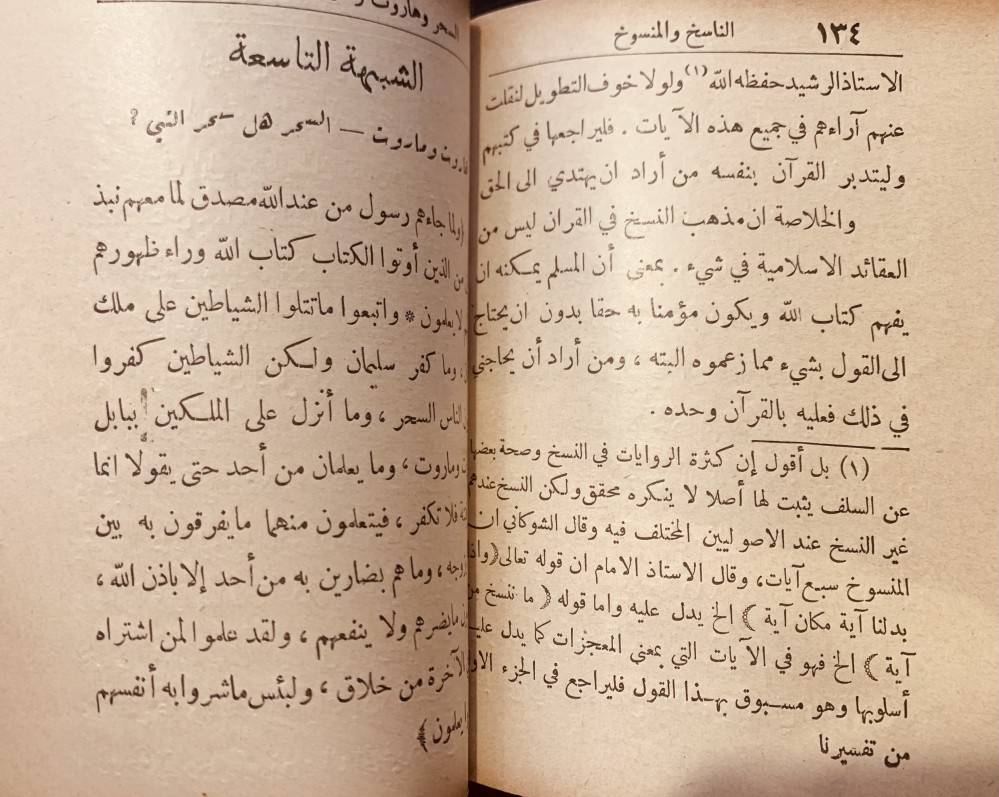 ١٣٤ الناسخ والمنسوخ
الاستاذ الرشيد حفظه الله (١) ولولا خوف التطويل لنقلت
عنهم آراءهم في جميع هذه الآيات . فليراجعها في كتبهم
وليتدبر القرآن بنفسه من أراد ان يهتدي الى الحق
والخلاصة ان مذهب النسخ في القران ليس من
العقائد الاسلامية في شيء . بمعنى أن المسلم يمكنه ان
يفهم كتاب الله ويكون مؤمنا به حقا بدون ان يحتاج
الى القول بشيء مما زعموه البته ، ومن أراد أن يحاجني
في ذلك فعليه بالقرآن وحده .
(١) بل أقول إن كثرة الروايات في النسخ وصحة بعضها
عن السلف يثبت لها أصلا لا ينكره محقق ولكن النسخ عندهم
غير النسخ عند الاصوليين المختلف فيه وقال الشوكاني ان
المنسوخ سبع آيات، وقال الاستاذ الامام ان قوله تعالى (واذا
بدلنا آية مكان آية ) الخ يدل عليه واما قوله ( ما ننسخ من
آية ) الخ فهو في الآيات التي بمعنى المعجزات كما يدل عليه
أسلوبها وهو مسبوق بهذا القول فليراجع في الجزء الاول
من تفسيرنا
السحر وهاروت
الشبهة التاسعة
هاروت وماروت — السحر هل سحر النبي ?
(ولما جاءهم رسول من عند الله مصدق لما معهم نبذ
من الذين أوتوا الكتاب كتاب الله وراء ظهورهم
لا يعلمون * واتبعوا ما تتلوا الشياطين على ملك
، وما كفر سليمان ولكن الشياطين كفروا
الناس السحر ، وما أنزل على الملكين ببابل
وماروت ، وما يعلمان من أحد حتى يقولا انما
فلا تكفر ، فيتعلمون منهما ما يفرقون به بين
وزوجه ، وما هم بضارين به من أحد إلا باذن الله ،
ما يضرهم ولا ينفعهم ، ولقد علموا لمن اشتراه
الآخرة من خلاق ، ولبئس ما شروا به أنفسهم
يعلمون )